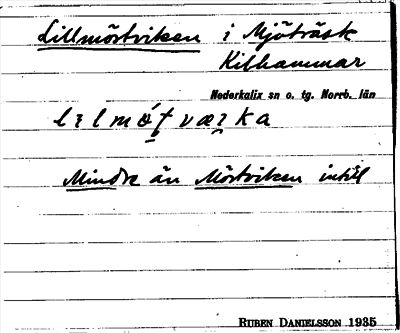 Lillmörtviken i Mjöträsk
Kilhammar
Nederkalix sn o. tg. Norrb. län
Mindre än Mörtviken intill
RUBEN DANIELSSON 1935